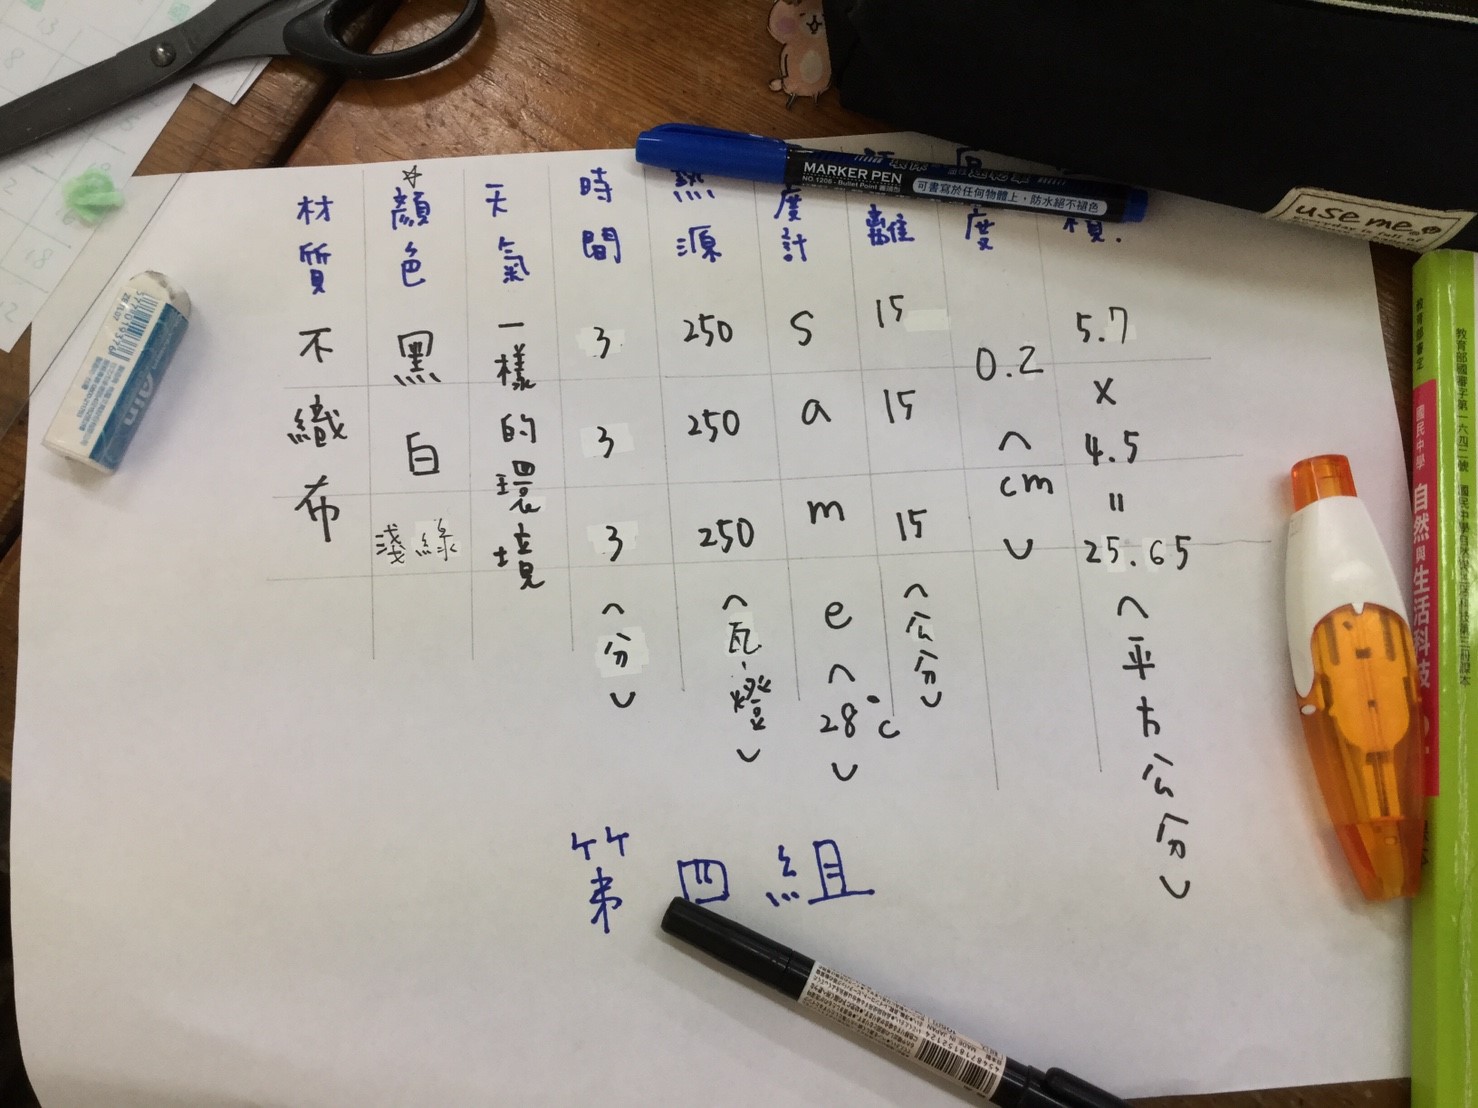 材質
☆顏色
天氣
時間
熱源
度計
離
度
積.
不織布
黑
白
淺綠
一樣的環境
3
3
3
(分)
250
250
250
(瓦燈)
same
(28°C)
15
15
15
(公分)
0.2
(cm)
5.7
×
4.5
=
25.65
(平方公分)
第四組
MARKER PEN
NO.1209 - Bullet Point
可書寫於任何物體上，防水絕不褪色
use me
教育部審定
國民中學 自然與生活科技